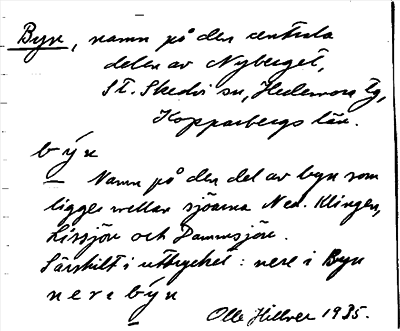 Byn, namn på den centrala
delen av Nyberget,
St. Skedvi sn, Hedemora tg,
Kopparbergs län.
býn
— Namn på den del av byn som
ligger mellan sjöarna Ned. Klingen,
Lissjön och Dammsjön.
Särskilt i uttrycket: nere i Byn
nere býn
Olle Hillver 1935.